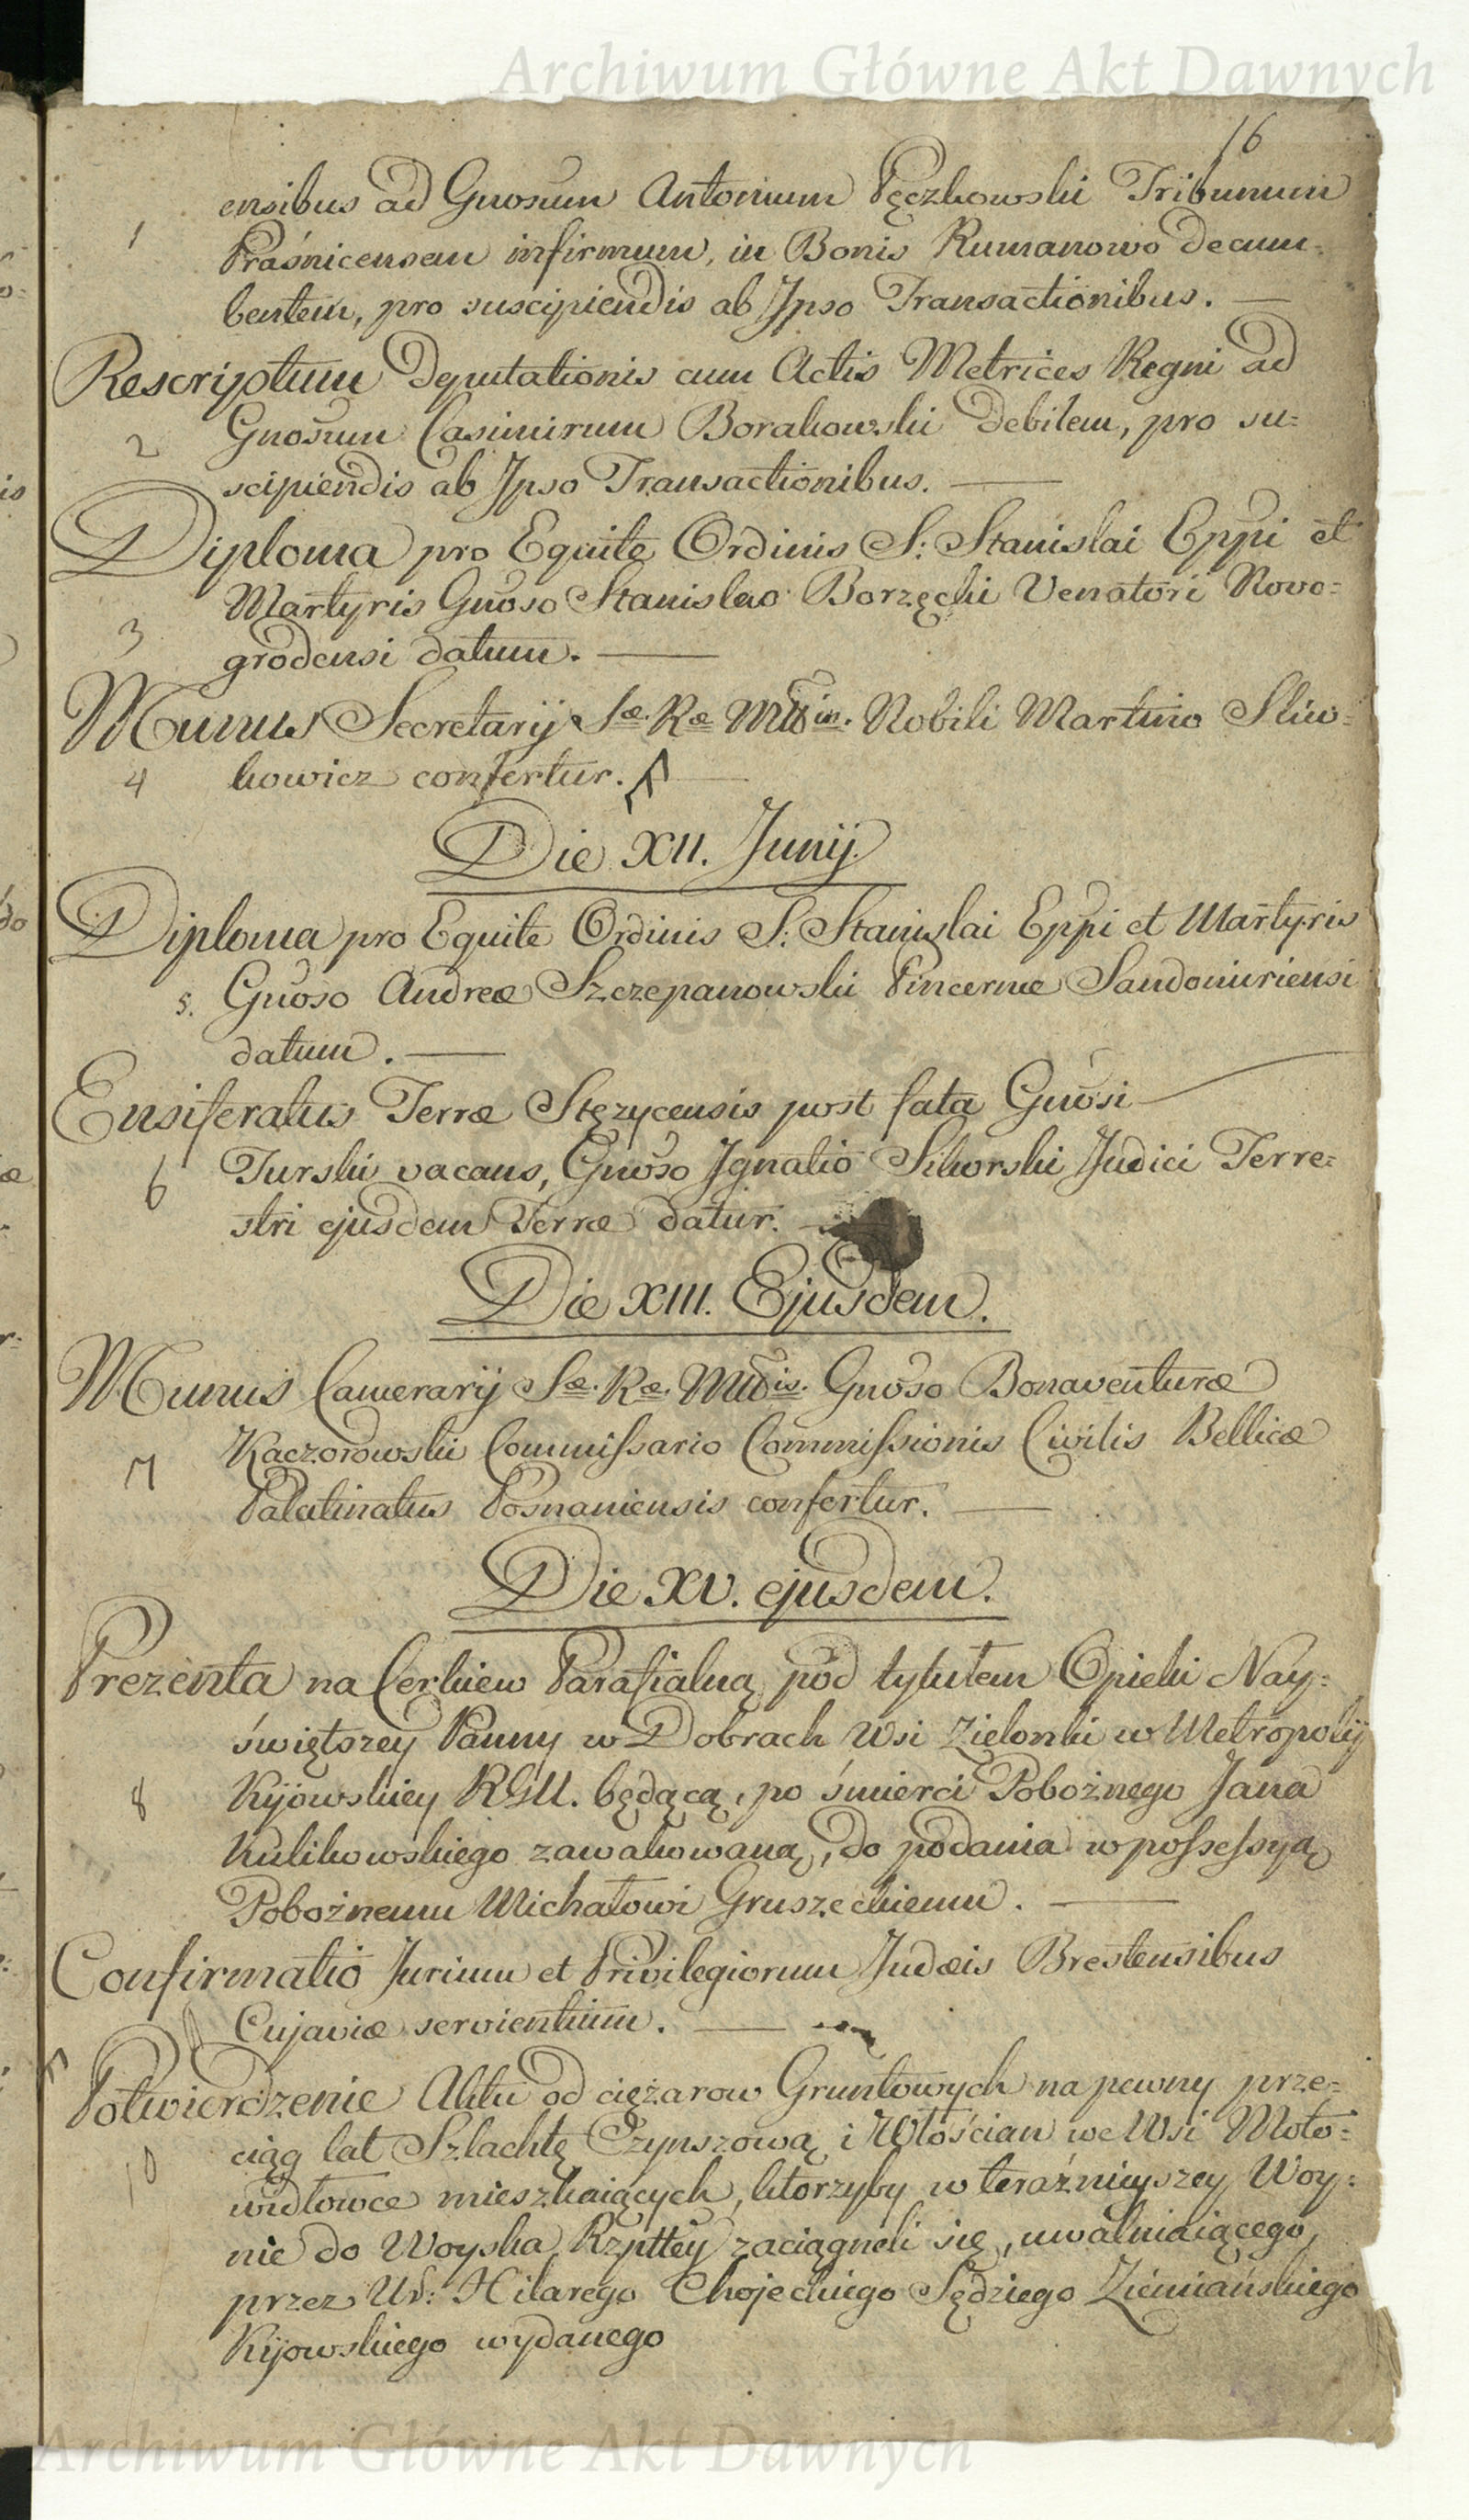 Archiwum Główne Akt Dawnych
16
ensibus ad Gnosum Antonium Pęczkowski Tribunum
1
Praśnicensem infirmum, in Bonis Rumanowo decum=
bentem, pro suscipiendis ab Ipso Transactionibus.
Rescriptum Deputationis cum Actis Metrices Regni ad
2 Gnosum Casimirum Borakowski debilem, pro su=
scipiendis ab Ipso Transactionibus.
Diploma pro Equite Ordinis S: Stanislai Eppi et
Martyris Gnoso Stanislao Borzęcki Venatori Novo=
3
grodensi datum.
Munus Secretarij Sæ. Ræ Mttis. Nobili Martino Sliw=
4 kowicz confertur.
Die XII. Junij.
Diploma pro Equite Ordinis S: Stanislai Eppi et Martyris
5. Gnoso Andreæ Szczepanowski Pincernæ Sandomiriensi
datum.
Ensiferatus Terræ Stęzycensis post fata Gnosi
6 Turski vacans, Gnoso Ignatio Sikorski Judici Terre=
stri ejusdem Terræ datur.
Die XIII. Ejusdem.
Munus Camerarij Sæ. Ræ. Mttis. Gnoso Bonaventuræ
7 Kaczorowski Commissario Commissionis Civilis Bellicæ
Palatinatus Posnaniensis confertur.
Die XV. ejusdem.
Prezenta na Cerkiew Parafialną pod tytułem Opieki Nay=
świętszey Panny w Dobrach Wsi Zielonki w Metropolij
8 Kijowskiey RGU. będącą, po śmierci Pobożnego Jana
Kulikowskiego zawakowaną, do podania w possessyą
Pobożnemu Michałowi Gruszeckiemu.
Confirmatio Jurium et Privilegiorum Judæis Brestensibus
Cujaviæ servientium.
Potwierdzenie Aktu od ciężarow Gruntowych na pewny prze=
10 ciąg lat Szlachtę Czynszową i Włościan we Wsi Moto=
widłowce mieszkaiących, ktorzyby w teraźnieyszey Woy=
nie do Woyska Rzpttey zaciągneli się, uwalniaiącego,
przez Ur: Hilarego Chojeckiego Sędziego Ziemiańskiego
Kijowskiego wydanego
Archiwum Główne Akt Dawnych